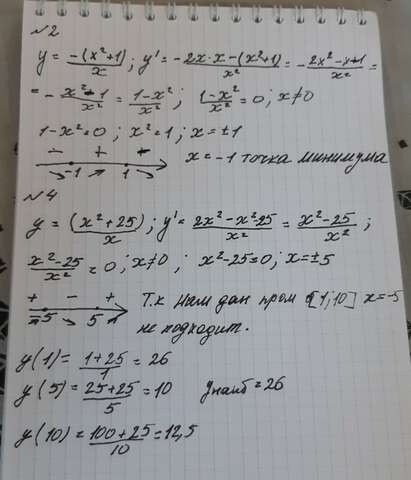 №2
y = -(x²+1)/x ; y' = -2x·x-(x²+1)/x² = -2x²-x+1/x² =
= -x²-1/x² = 1-x²/x² ; 1-x²/x² = 0 ; x≠0
1-x²=0 ; x²=1 ; x=±1
- + -
-1 1 x=-1 точка минимума
№4
y = (x²+25)/x ; y' = 2x²-x²-25/x² = x²-25/x² ;
x²-25/x² = 0 ; x≠0 ; x²-25=0 ; x=±5
+ - + Т.к нам дан пром [1;10] x=-5
-5 5 не подходит.
y(1) = 1+25/1 = 26
y(5) = 25+25/5 = 10 yнаиб = 26
y(10) = 100+25/10 = 12,5